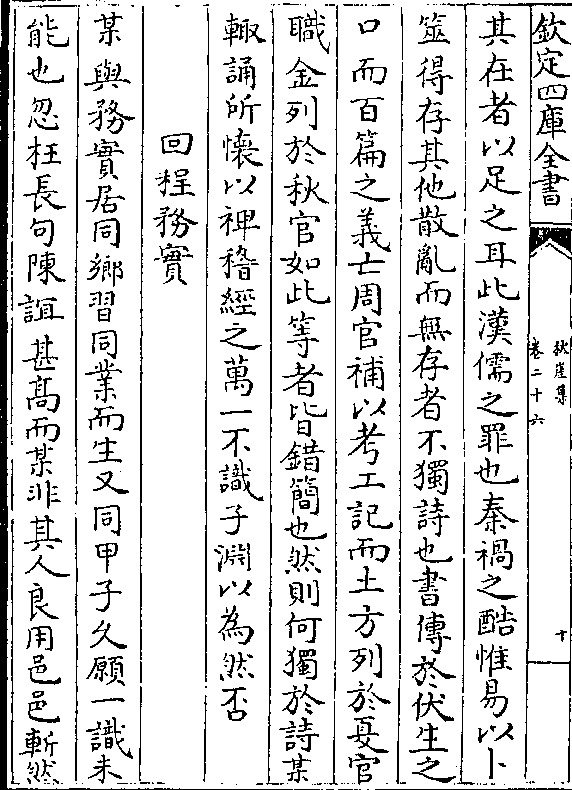 欽定四庫全書
秋崖集
卷二十六
十
其在者以足之耳此漢儒之罪也秦禍之酷惟易以卜
筮得存其他散亂而無存者不獨詩也書傳於伏生之
口而百篇之義亡周官補以考工記而土方列於夏官
職金列於秋官如此等者皆錯簡也然則何獨於詩某
輙誦所懐以裨稽經之萬一不識子淵以為然否
回程務實
某與務實居同鄉習同業而生又同甲子久願一識未
能也忽枉長句陳誼甚髙而某非其人良用邑邑斬然